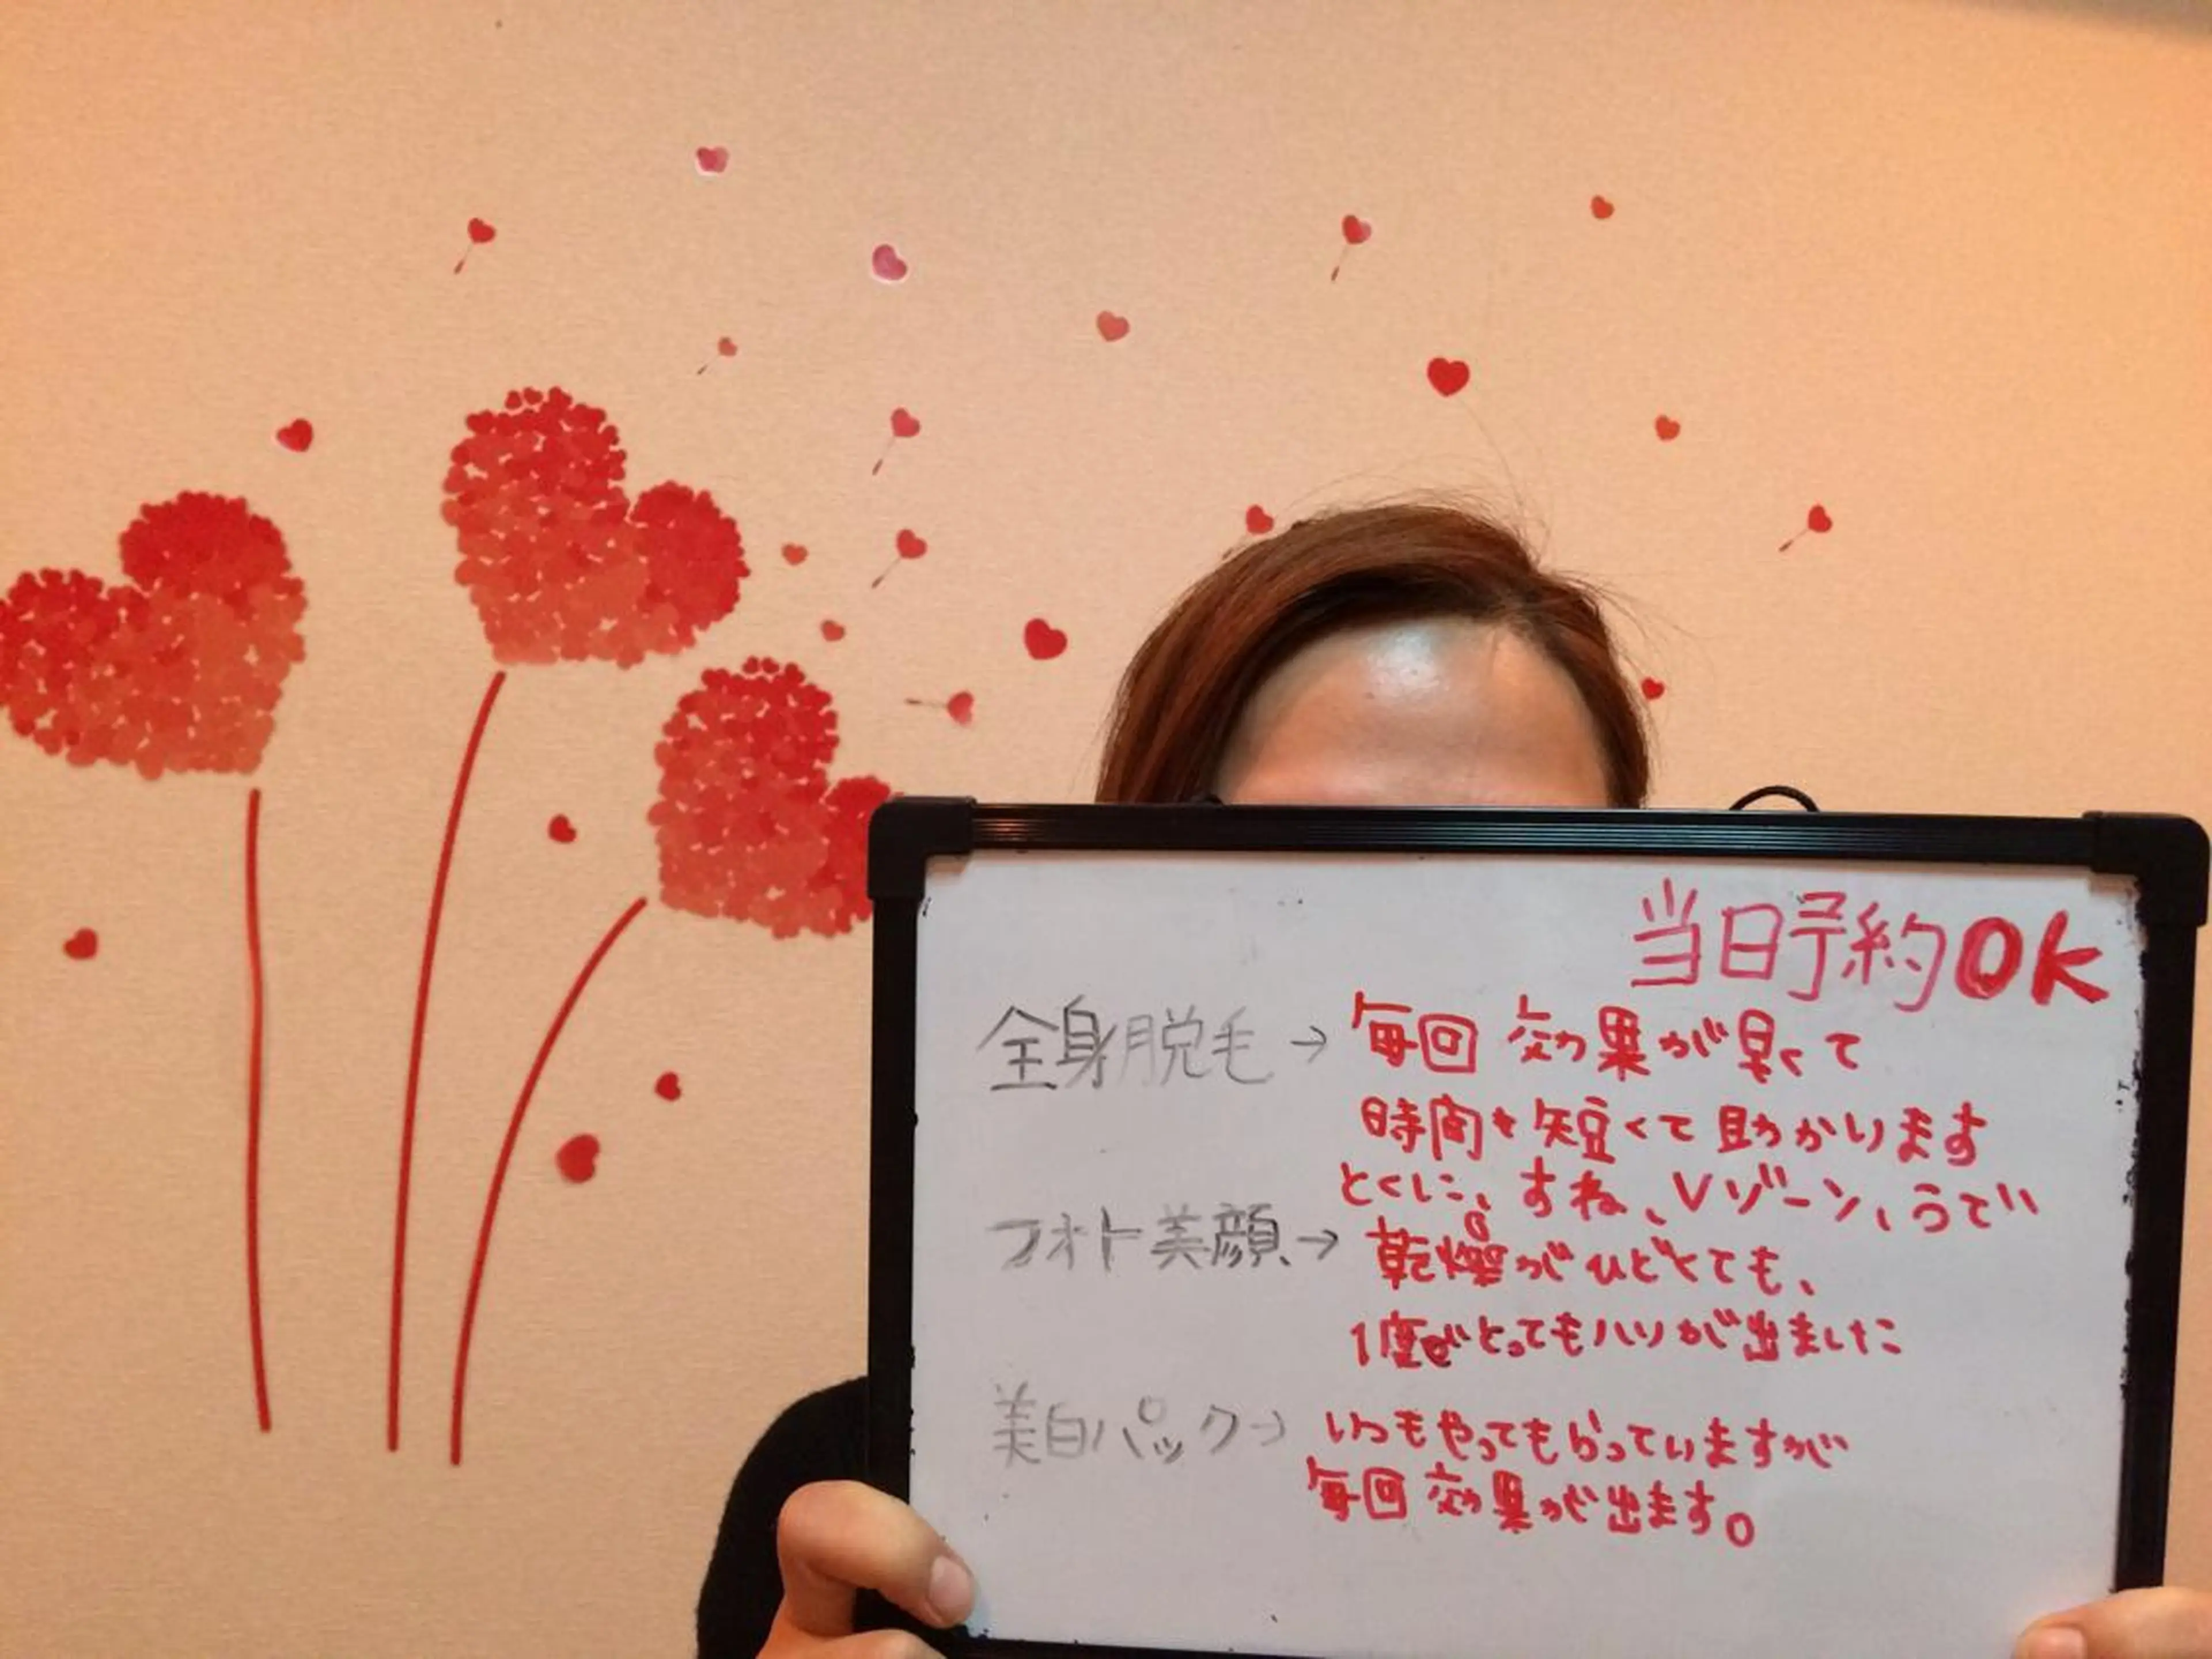 当日予約OK
全身脱毛→毎回効果が早くて
時間も短くて助かります
とくに、すね、Vゾーン、うで
フォト美顔→乾燥がひどくても、
1度でとってもハリが出ました
美白パック→いつもやってもらっていますが
毎回効果が出ます。